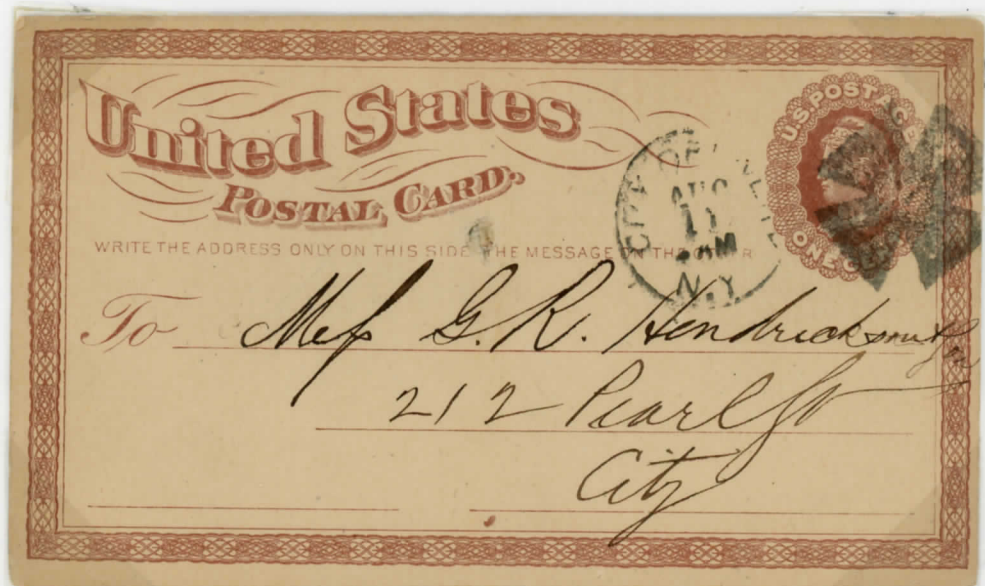 United States
POSTAL CARD.
WRITE THE ADDRESS ONLY ON THIS SIDE THE MESSAGE ON THE OTHER
U.S. POSTAGE
ONE CENT
AUG
11
N.Y.
To Mess G. R. Hendrickson &
212 Pearl St
City